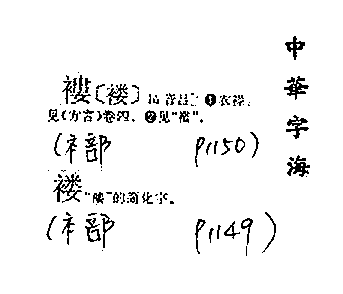 中華字海
褸〔褛〕lǚ 音吕 ❶衣襟。
见《方言》卷四。❷见“褴”。
(衤部 P1150)
褛“褸”的简化字。
(衤部 P1149)